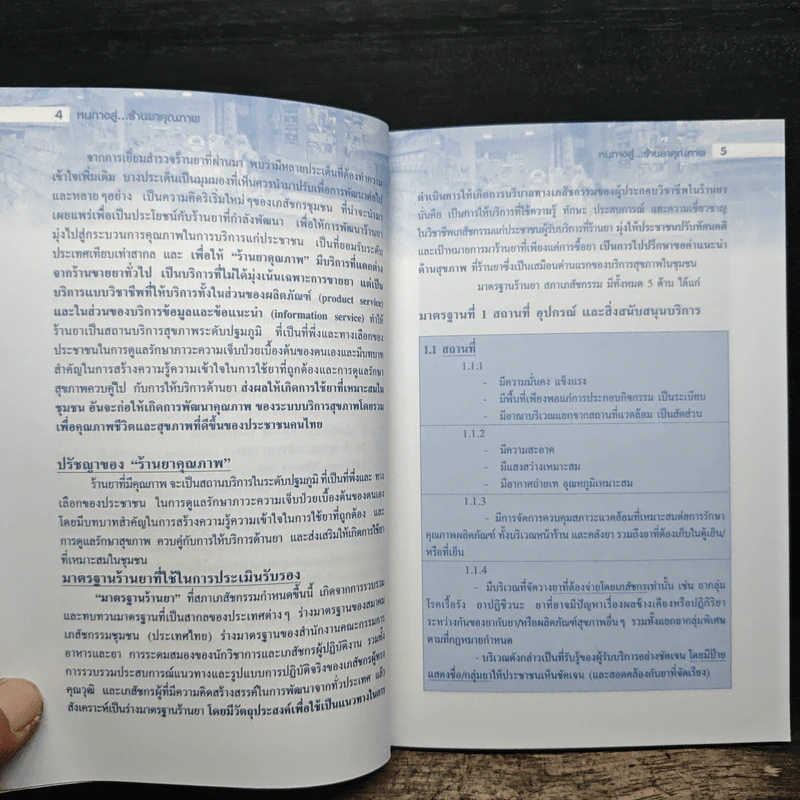 4 หนทางสู่...ร้านยาคุณภาพ
จากการเยี่ยมสำรวจร้านยาที่ผ่านมา พบว่ามีหลายประเด็นที่ต้องทำความ
เข้าใจเพิ่มเติม บางประเด็นเป็นมุมมองที่เห็นควรนำมาปรับเพื่อการพัฒนาต่อไป
และหลายๆอย่าง เป็นความคิดริเริ่มใหม่ๆของเภสัชกรชุมชน ที่น่าจะนำมา
เผยแพร่เพื่อเป็นประโยชน์กับร้านยาที่กำลังพัฒนา เพื่อให้การพัฒนาร้านยา
มุ่งไปสู่กระบวนการคุณภาพในการบริการแก่ประชาชน เป็นที่ยอมรับระดับ
ประเทศเทียบเท่าสากล และ เพื่อให้ "ร้านยาคุณภาพ" มีบริการที่แตกต่าง
จากร้านขายยาทั่วไป เป็นบริการที่ไม่ได้มุ่งเน้นเฉพาะการขายยา แต่เป็น
บริการแบบวิชาชีพที่ให้บริการทั้งในส่วนของผลิตภัณฑ์ (product service)
และในส่วนของบริการข้อมูลและข้อแนะนำ (information service) ทำให้
ร้านยาเป็นสถานบริการสุขภาพระดับปฐมภูมิ ที่เป็นที่พึ่งและทางเลือกของ
ประชาชนในการดูแลรักษาภาวะความเจ็บป่วยเบื้องต้นของตนเองและมีบทบาท
สำคัญในการสร้างความรู้ความเข้าใจในการใช้ยาที่ถูกต้องและการดูแลรักษา
สุขภาพควบคู่ไป กับการให้บริการด้านยา ส่งผลให้เกิดการใช้ยาที่เหมาะสมใน
ชุมชน อันจะก่อให้เกิดการพัฒนาคุณภาพ ของระบบบริการสุขภาพโดยรวม
เพื่อคุณภาพชีวิตและสุขภาพที่ดีขึ้นของประชาชนคนไทย
ปรัชญาของ "ร้านยาคุณภาพ"
ร้านยาที่มีคุณภาพ จะเป็นสถานบริการในระดับปฐมภูมิ ที่เป็นที่พึ่งและ ทาง
เลือกของประชาชน ในการดูแลรักษาภาวะความเจ็บป่วยเบื้องต้นของตนเอง
โดยมีบทบาทสำคัญในการสร้างความรู้ความเข้าใจในการใช้ยาที่ถูกต้อง และ
การดูแลรักษาสุขภาพ ควบคู่กับการให้บริการด้านยา และส่งเสริมให้เกิดการใช้ยา
ที่เหมาะสมในชุมชน
มาตรฐานร้านยาที่ใช้ในการประเมินรับรอง
"มาตรฐานร้านยา" ที่สภาเภสัชกรรมกำหนดขึ้นนี้ เกิดจากการรวบรวม
และทบทวนมาตรฐานที่เป็นสากลของประเทศต่างๆ ร่างมาตรฐานของสมาคม
เภสัชกรรมชุมชน (ประเทศไทย) ร่างมาตรฐานของสำนักงานคณะกรรมการ
อาหารและยา การระดมสมองของนักวิชาการและเภสัชกรผู้ปฏิบัติงาน รวมทั้ง
การรวบรวมประสบการณ์แนวทางและรูปแบบการปฏิบัติจริงของเภสัชกรผู้ทรง
คุณวุฒิ และเภสัชกรผู้ที่มีความคิดสร้างสรรค์ในการพัฒนาจากทั่วประเทศ แล้ว
สังเคราะห์เป็นร่างมาตรฐานร้านยา โดยมีวัตถุประสงค์เพื่อใช้เป็นแนวทางในการ
หนทางสู่...ร้านยาคุณภาพ 5
ดำเนินการให้เกิดการบริบาลทางเภสัชกรรมของผู้ประกอบวิชาชีพในร้านยา
นั่นคือ เป็นการให้บริการที่ใช้ความรู้ ทักษะ ประสบการณ์ และความเชี่ยวชาญ
ในวิชาชีพเภสัชกรรมแก่ประชาชนผู้รับบริการที่ร้านยา มุ่งให้ประชาชนปรับทัศนคติ
และเป้าหมายการมาร้านยาที่เพียงแค่การซื้อยา เป็นการไปปรึกษาขอคำแนะนำ
ด้านสุขภาพ ที่ร้านยาซึ่งเป็นเสมือนด่านแรกของบริการสุขภาพในชุมชน
มาตรฐานร้านยา สภาเภสัชกรรม มีทั้งหมด 5 ด้าน ได้แก่
มาตรฐานที่ 1 สถานที่ อุปกรณ์ และสิ่งสนับสนุนบริการ
1.1 สถานที่
1.1.1
- มีความมั่นคง แข็งแรง
- มีพื้นที่เพียงพอแก่การประกอบกิจกรรม เป็นระเบียบ
- มีอาณาบริเวณแยกจากสถานที่แวดล้อม เป็นสัดส่วน
1.1.2
- มีความสะอาด
- มีแสงสว่างเหมาะสม
- มีอากาศถ่ายเท อุณหภูมิเหมาะสม
1.1.3
- มีการจัดการควบคุมสภาวะแวดล้อมที่เหมาะสมต่อการรักษา
คุณภาพผลิตภัณฑ์ ทั้งบริเวณหน้าร้าน และคลังยา รวมถึงยาที่ต้องเก็บในตู้เย็น/
หรือที่เย็น
1.1.4
- มีบริเวณที่จัดวางยาที่ต้องจ่ายโดยเภสัชกรเท่านั้น เช่น ยากลุ่ม
โรคเรื้อรัง ยาปฏิชีวนะ ยาที่อาจมีปัญหาเรื่องผลข้างเคียงหรือปฏิกิริยา
ระหว่างกันของยากับยา/หรือผลิตภัณฑ์สุขภาพอื่นๆ รวมทั้งแยกยากลุ่มพิเศษ
ตามที่กฎหมายกำหนด
- บริเวณดังกล่าวเป็นที่รับรู้ของผู้รับบริการอย่างชัดเจน โดยมีป้าย
แสดงชื่อ/กลุ่มยาให้ประชาชนเห็นชัดเจน (และสอดคล้องกับยาที่จัดเรียง)